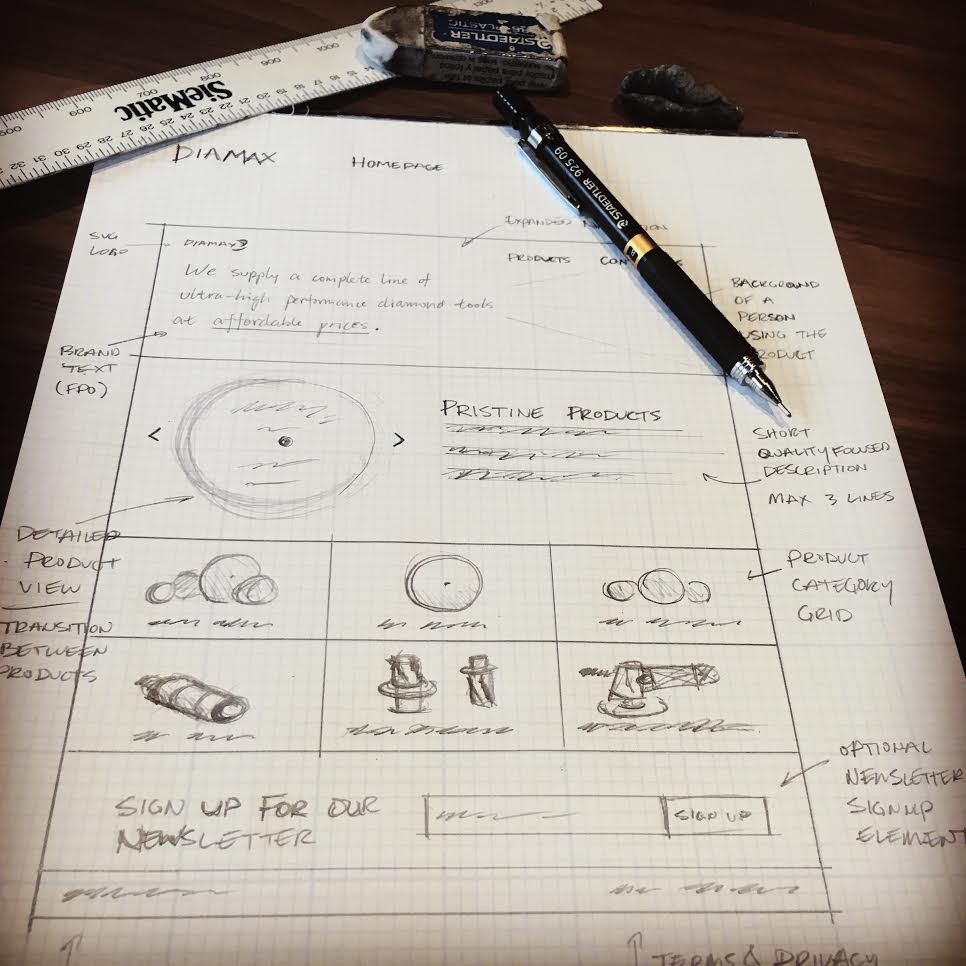 STAEDTLER
PLASTIC
SieMatic
STAEDTLER 925 09
DIAMAX
HOMEPAGE
SVG
LOGO
DIAMAX
EXPANDED
PRODUCTS
We supply a complete line of
ultra-high performance diamond tools
at affordable prices.
BACKGROUND
OF A
PERSON
USING THE
PRODUCT
BRAND
TEXT
(FPO)
< >
PRISTINE PRODUCTS
SHORT
QUALITY FOCUSED
DESCRIPTION
MAX 3 LINES
DETAILED
PRODUCT
VIEW
TRANSITION
BETWEEN
PRODUCTS
PRODUCT
CATEGORY
GRID
OPTIONAL
NEWSLETTER
SIGNUP
ELEMENT
SIGN UP FOR OUR
NEWSLETTER
SIGN UP
TERMS & PRIVACY